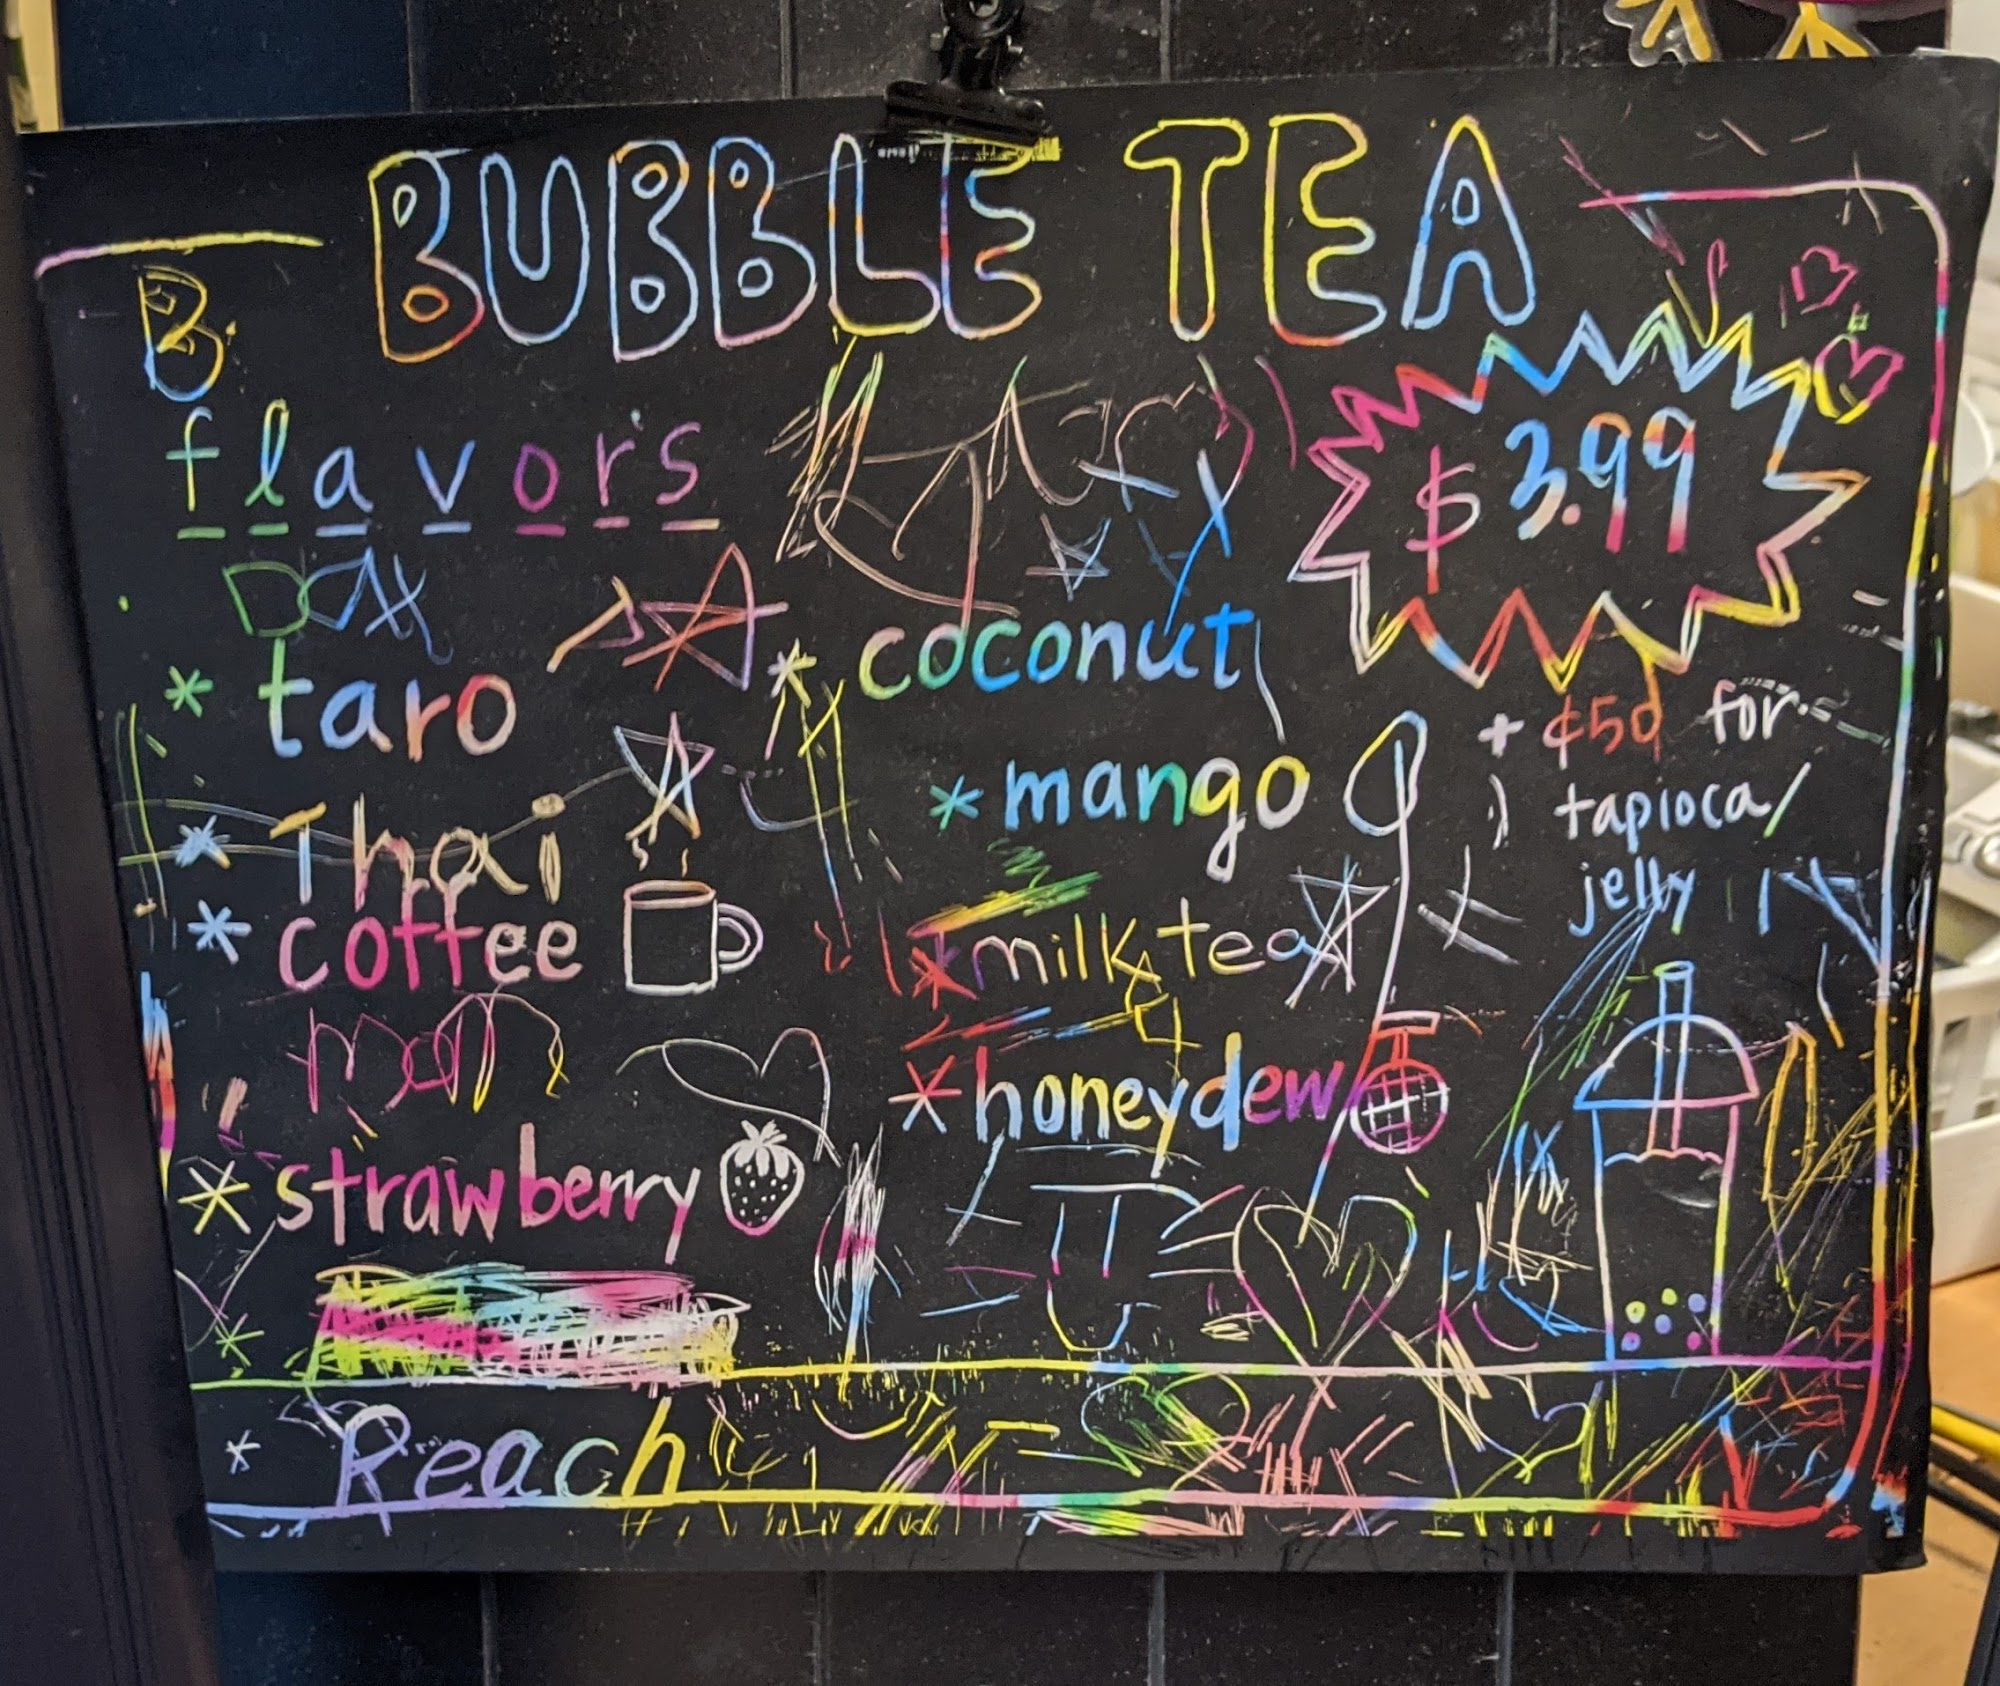 BUBBLE TEA
flavors
$3.99
Dax
* taro
* coconut
+ ¢50 for
tapioca/
jelly
* Thai
* mango
* coffee
* milk tea
* honeydew
* strawberry
*
* Reach